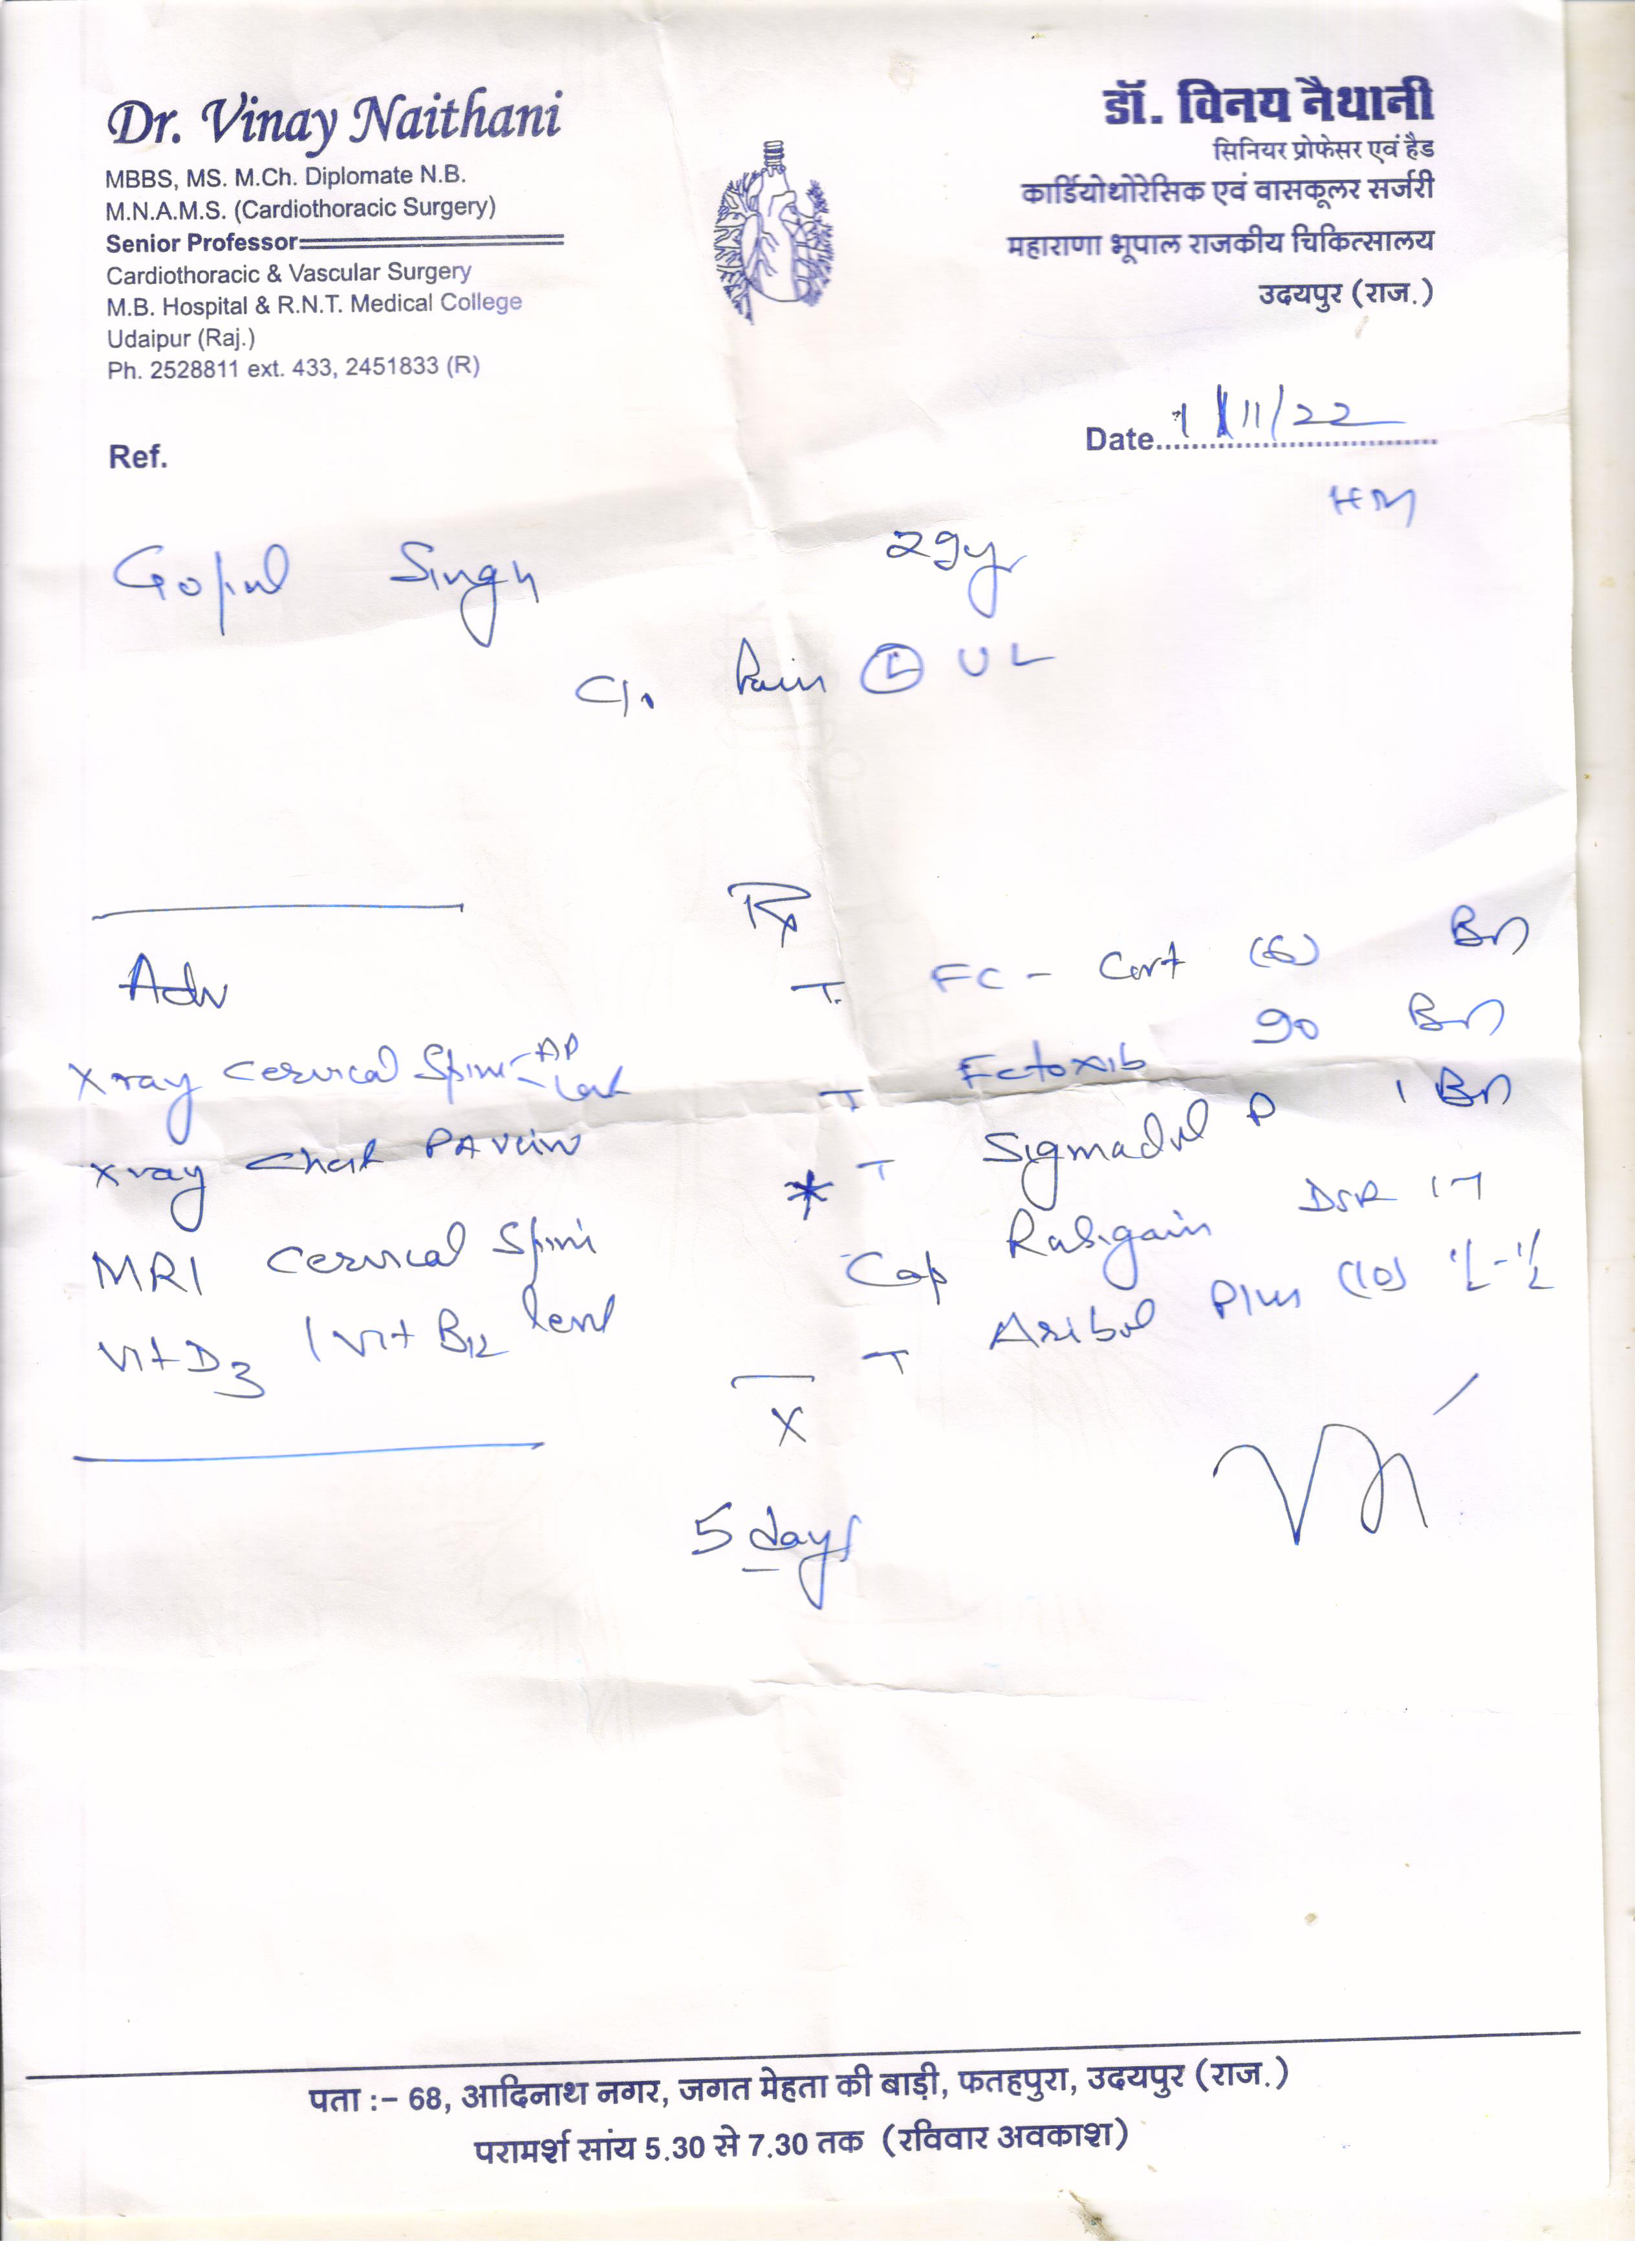 Dr. Vinay Naithani
MBBS, MS. M.Ch. Diplomate N.B.
M.N.A.M.S. (Cardiothoracic Surgery)
Senior Professor
Cardiothoracic & Vascular Surgery
M.B. Hospital & R.N.T. Medical College
Udaipur (Raj.)
Ph. 2528811 ext. 433, 2451833 (R)
डॉ. विनय नैथानी
सिनियर प्रोफेसर एवं हैड
कार्डियोथोरेसिक एवं वासकूलर सर्जरी
महाराणा भूपाल राजकीय चिकित्सालय
उदयपुर (राज.)
Date 1/11/22
Ref.
Gopal Singh 29y
Pain Ⓛ UL
Adv
Xray Cervical Spine AP
Lat
Xray Chest PA view
MRI Cervical Spine
Vit D3 / Vit B12 level
Rx
T. FC - Cort (6) BD
T Fetoxib 90 BD
* T Sigmadol P 1 BD
Cap Rabigain DSR
T Plus (10) ½-½
X
5 days
पता :- 68, आदिनाथ नगर, जगत मेहता की बाड़ी, फतहपुरा, उदयपुर (राज.)
परामर्श सांय 5.30 से 7.30 तक (रविवार अवकाश)